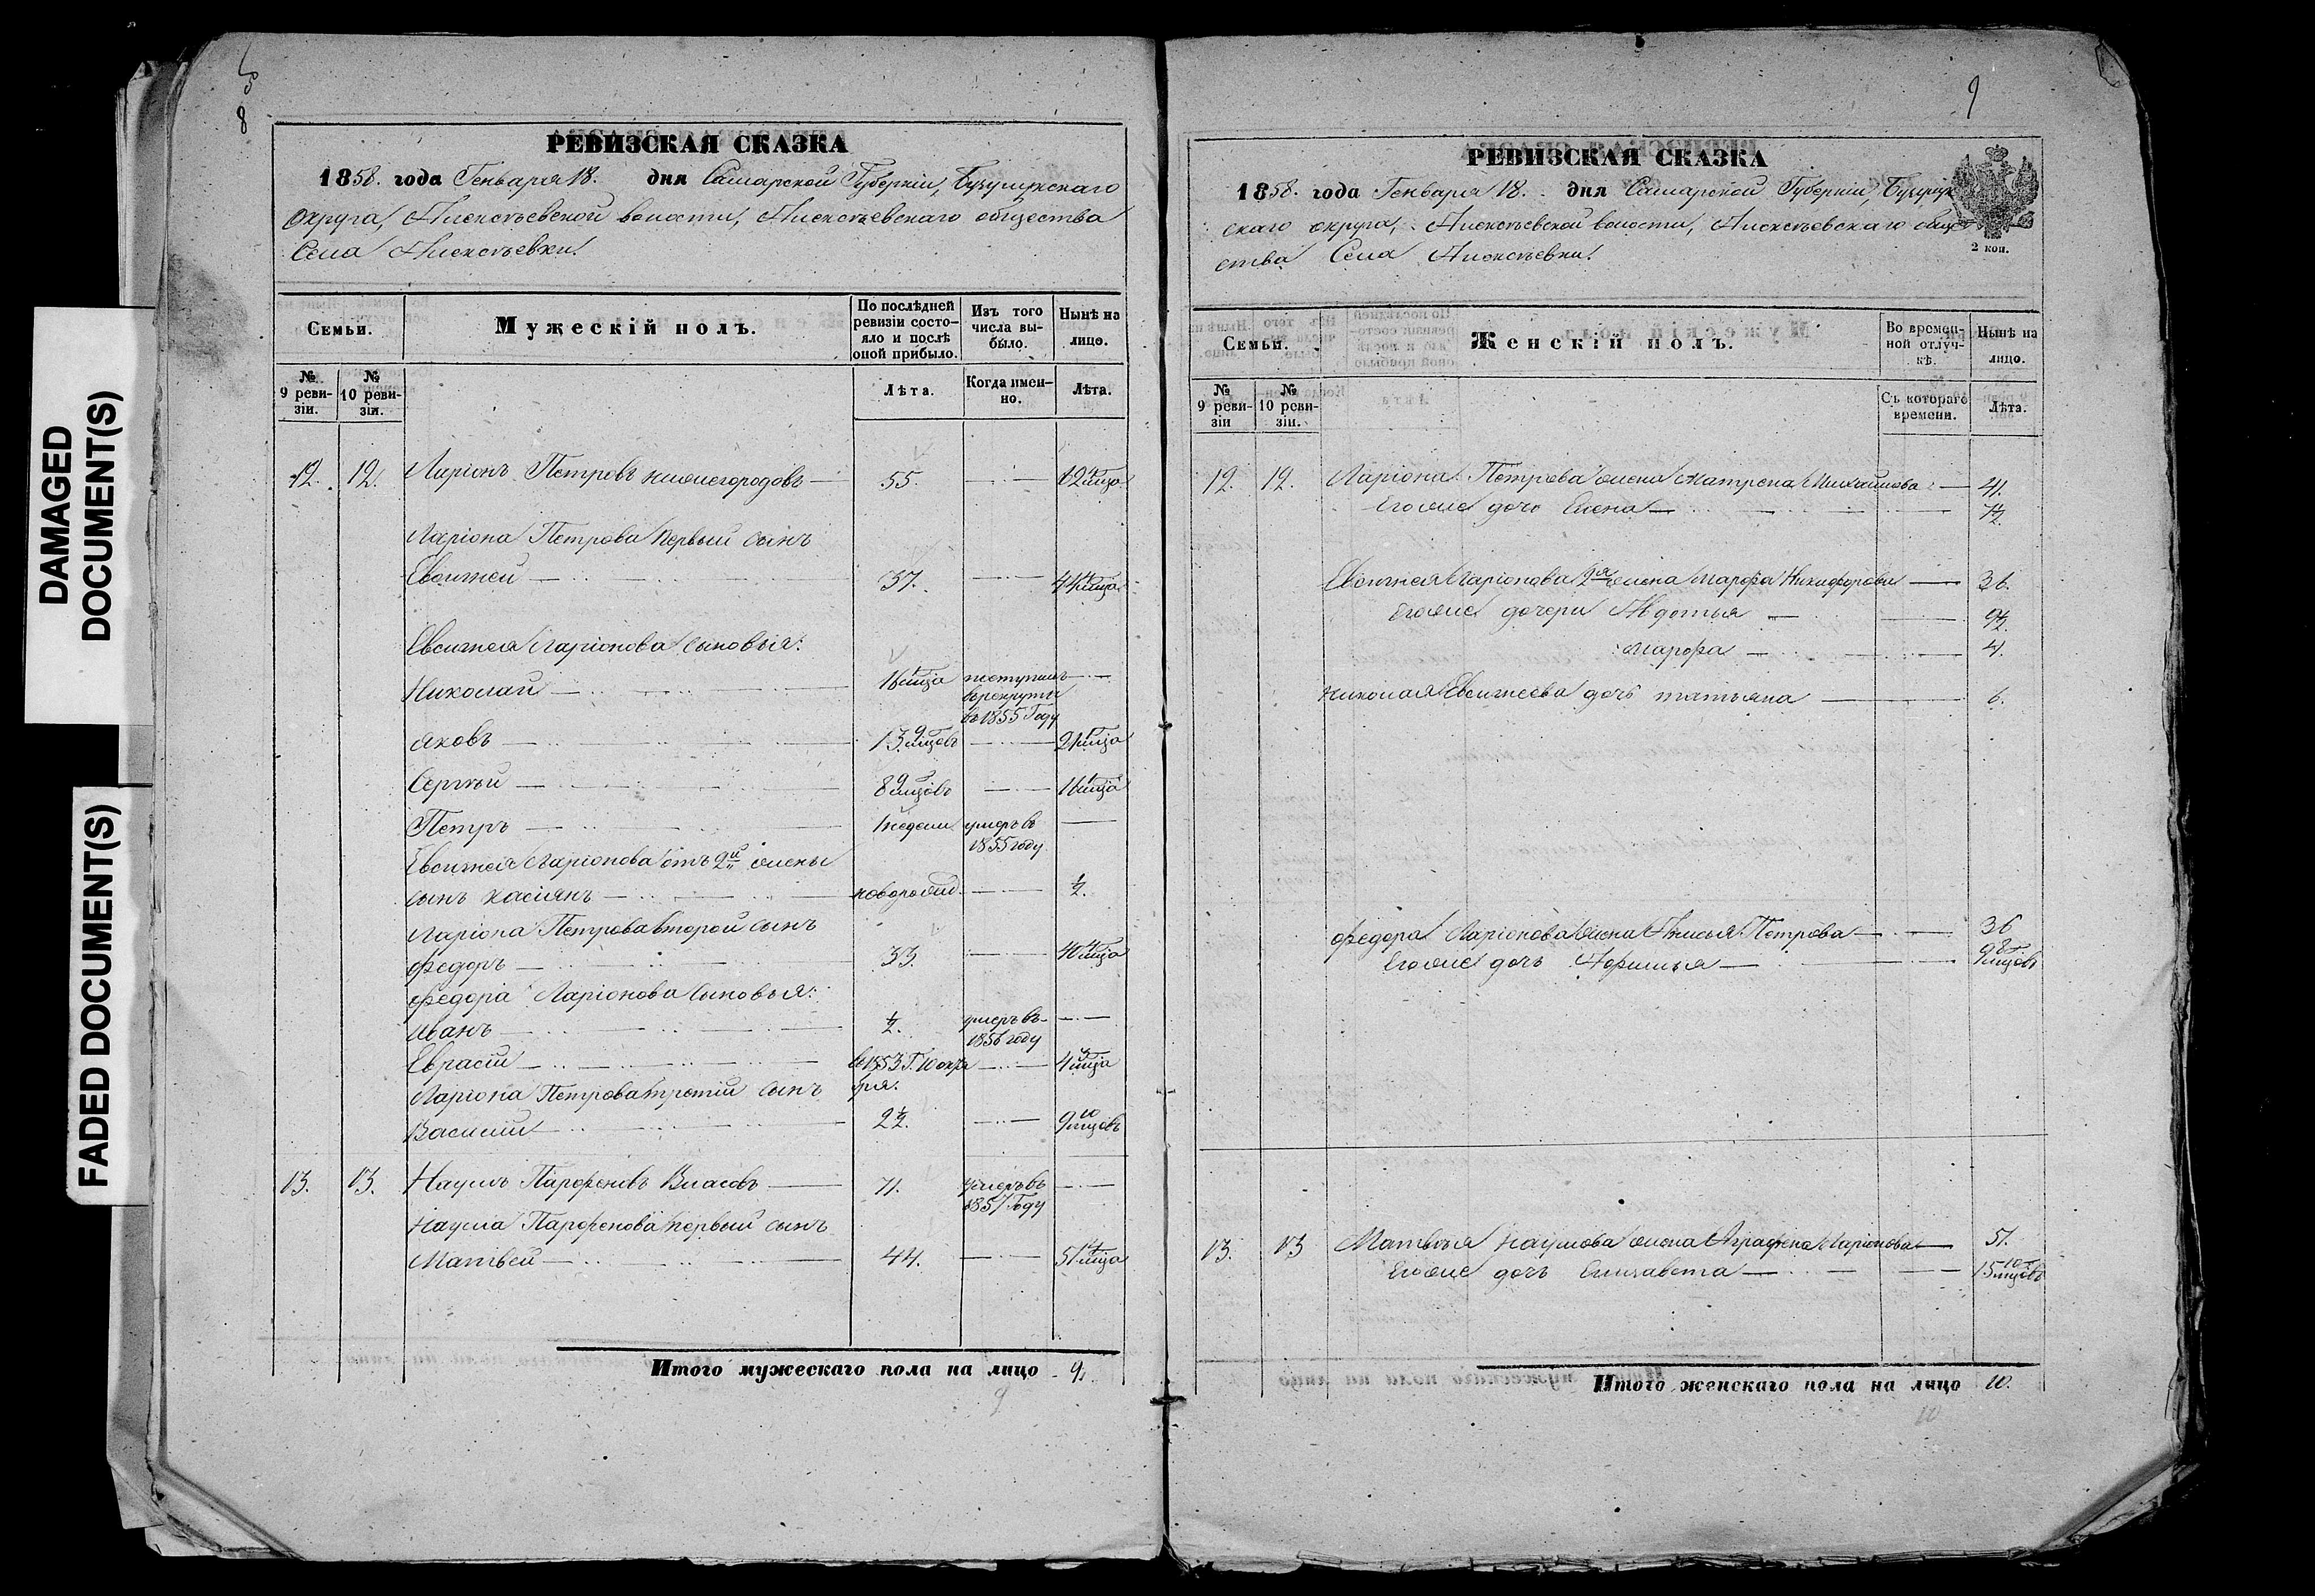 8
РЕВИЗСКАЯ СКАЗКА
1858. года Генваря 18. дня Самарской Губернии, Бузулукскаго
Округа, Алексѣевской волости, Алексѣевскаго общества
Села Алексѣевки.
Семьи.
Мужескій полъ.
По послѣдней ревизіи состояло и послѣ оной прибыло.
Изъ того числа выбыло.
Нынѣ на лицо.
№ 9 ревизіи.
№ 10 ревизіи.
Лѣта.
Когда именно.
Лѣта.
12. 12. Ларіонъ Петровъ Нижегородовъ 55.
Ларіона Петрова первый сынъ
Евсигней 37. 44
Евсигнея Ларіонова сыновья:
Николай 16 поступилъ
въ рекруты
въ 1855 Году
Яковъ 13 9 мцовъ 21
Сергѣй 8 9 мцовъ 16
Петръ 1 недели умеръ въ
1855 году
Евсигнея Ларіонова отъ 2й жены
сынъ Касіянъ новорожд. ½.
Ларіона Петрова второй сынъ
Федоръ 33. 40
Федора Ларіонова сыновья:
Иванъ ½. умеръ въ
1856 году
Еврасій въ 1853 Г. 10 октя 4
бря.
Ларіона Петрова третій сынъ
Василій 2½. 9 10 мцовъ
13. 13. Наумъ Парфеновъ Власовъ 71. умеръ въ
1857 Году
Наума Парфенова первый сынъ
Матвей 44. 51
Итого мужескаго пола на лицо 9.
9
9
РЕВИЗСКАЯ СКАЗКА
1858. года Генваря 18. дня Самарской Губерніи, Бузулук
скаго округа, Алексѣевской волости, Алексѣевскаго общe
ства Села Алексѣевки.
2 коп.
Семьи.
Женскій полъ.
Во временной отлучкѣ.
Нынѣ на лицо.
№ 9 ревизіи
№ 10 ревизіи.
Съ котораго времени.
Лѣта.
12. 12. Ларіона Петрова жена Матрена Михайлова 41.
Его же дочь Елена
Евсигнея Ларіонова 2я жена Марфа Никифорова 36.
Его же дочери Авдотья 9½.
Марфа 4.
Николая Евсигнеева дочь Татьяна 6.
Федора Ларіонова жена Анисья Петрова 36
Его же дочь Афимья 9 8 мцовъ
13. 13 Матвѣя Наумова жена Аграфена Ларіонова 51.
Его же дочь Елизавета 15 10 мцовъ
Итого женскаго пола на лицо 10.
10
DAMAGED
DOCUMENT(S)
FADED DOCUMENT(S)